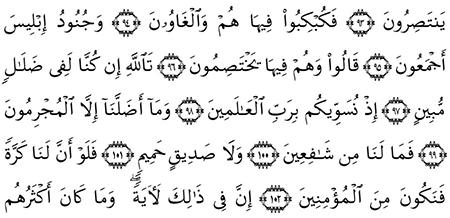 يَنتَصِرُونَ ﴿٩٣﴾ فَكُبْكِبُوا۟ فِيهَا هُمْ وَٱلْغَاوُۥنَ ﴿٩٤﴾ وَجُنُودُ إِبْلِيسَ
أَجْمَعُونَ ﴿٩٥﴾ قَالُوا۟ وَهُمْ فِيهَا يَخْتَصِمُونَ ﴿٩٦﴾ تَٱللَّهِ إِن كُنَّا لَفِى ضَلَٰلٍ
مُّبِينٍ ﴿٩٧﴾ إِذْ نُسَوِّيكُم بِرَبِّ ٱلْعَٰلَمِينَ ﴿٩٨﴾ وَمَآ أَضَلَّنَآ إِلَّا ٱلْمُجْرِمُونَ
﴿٩٩﴾ فَمَا لَنَا مِن شَٰفِعِينَ ﴿١٠٠﴾ وَلَا صَدِيقٍ حَمِيمٍ ﴿١٠١﴾ فَلَوْ أَنَّ لَنَا كَرَّةً
فَنَكُونَ مِنَ ٱلْمُؤْمِنِينَ ﴿١٠٢﴾ إِنَّ فِى ذَٰلِكَ لَءَايَةً ۖ وَمَا كَانَ أَكْثَرُهُم